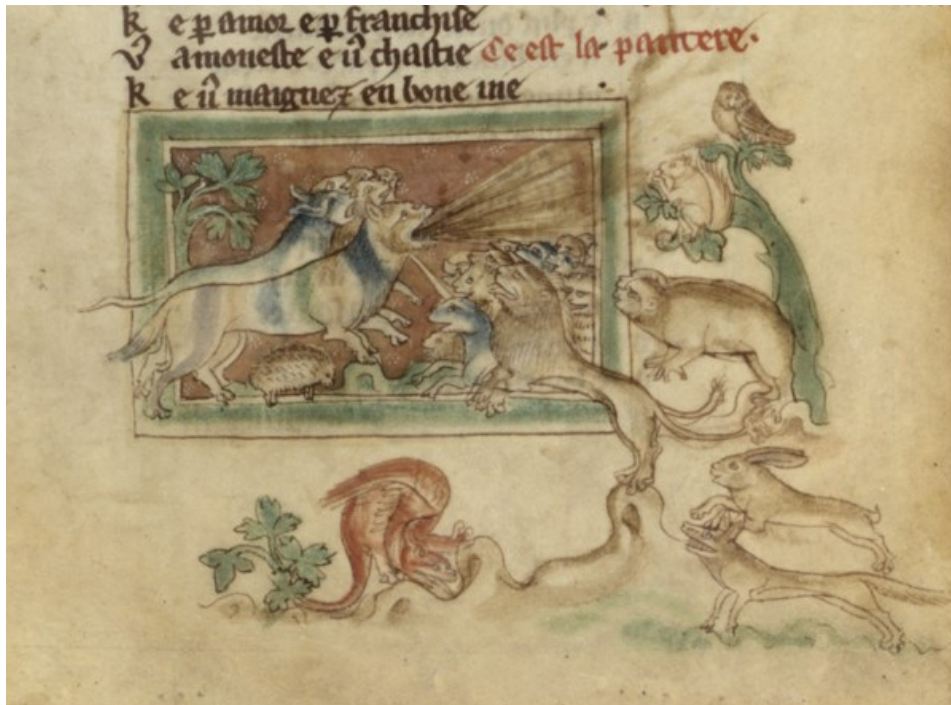 k e p amor e p franchise
v amoneste e v chastie Ce est la pantere.
k e v maignez en bone uie